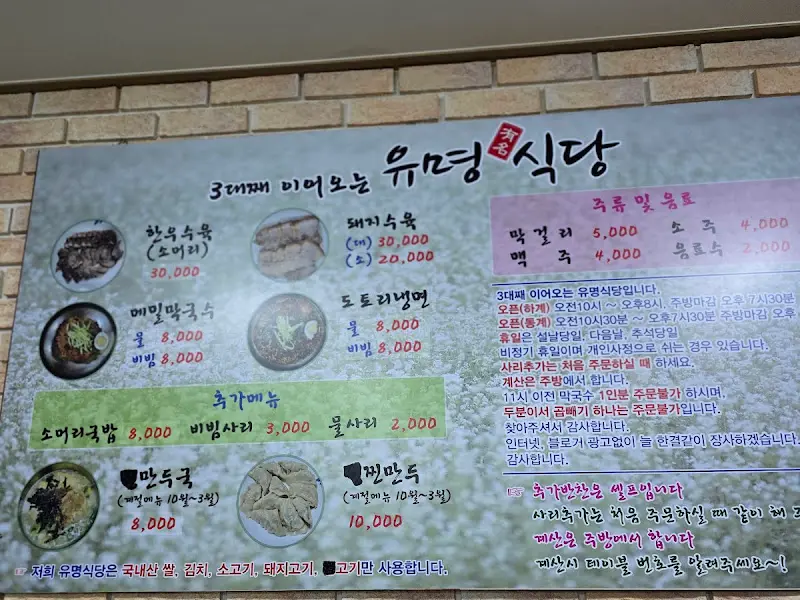 3대째 이어오는 유명 有名 식당
한우수육
(소머리)
30,000
돼지수육
(대) 30,000
(소) 20,000
메밀막국수
물 8,000
비빔 8,000
도토리냉면
물 8,000
비빔 8,000
추가메뉴
소머리국밥 8,000 비빔사리 3,000 물사리 2,000
만두국
(계절메뉴 10월~3월)
8,000
찐만두
(계절메뉴 10월~3월)
10,000
☞ 저희 유명식당은 국내산 쌀, 김치, 소고기, 돼지고기, 고기만 사용합니다.
주류 및 음료
막걸리 5,000 소주 4,000
맥주 4,000 음료수 2,000
3대째 이어오는 유명식당입니다.
오픈(하계) 오전10시 ~ 오후8시, 주방마감 오후 7시30분
오픈(동계) 오전10시30분 ~ 오후7시30분 주방마감 오후
휴일은 설날당일, 다음날, 추석당일
비정기 휴일이며 개인사정으로 쉬는 경우 있습니다.
사리추가는 처음 주문하실 때 하세요.
계산은 주방에서 합니다.
11시 이전 막국수 1인분 주문불가 하시며,
두분이서 곱빼기 하나는 주문불가입니다.
찾아주셔서 감사합니다.
인터넷, 블로거 광고없이 늘 한결같이 장사하겠습니다.
감사합니다.
☞ 추가반찬은 셀프입니다
사리추가는 처음 주문하실 때 같이 해
계산은 주방에서 합니다
계산시 테이블 번호를 알려주세요~!